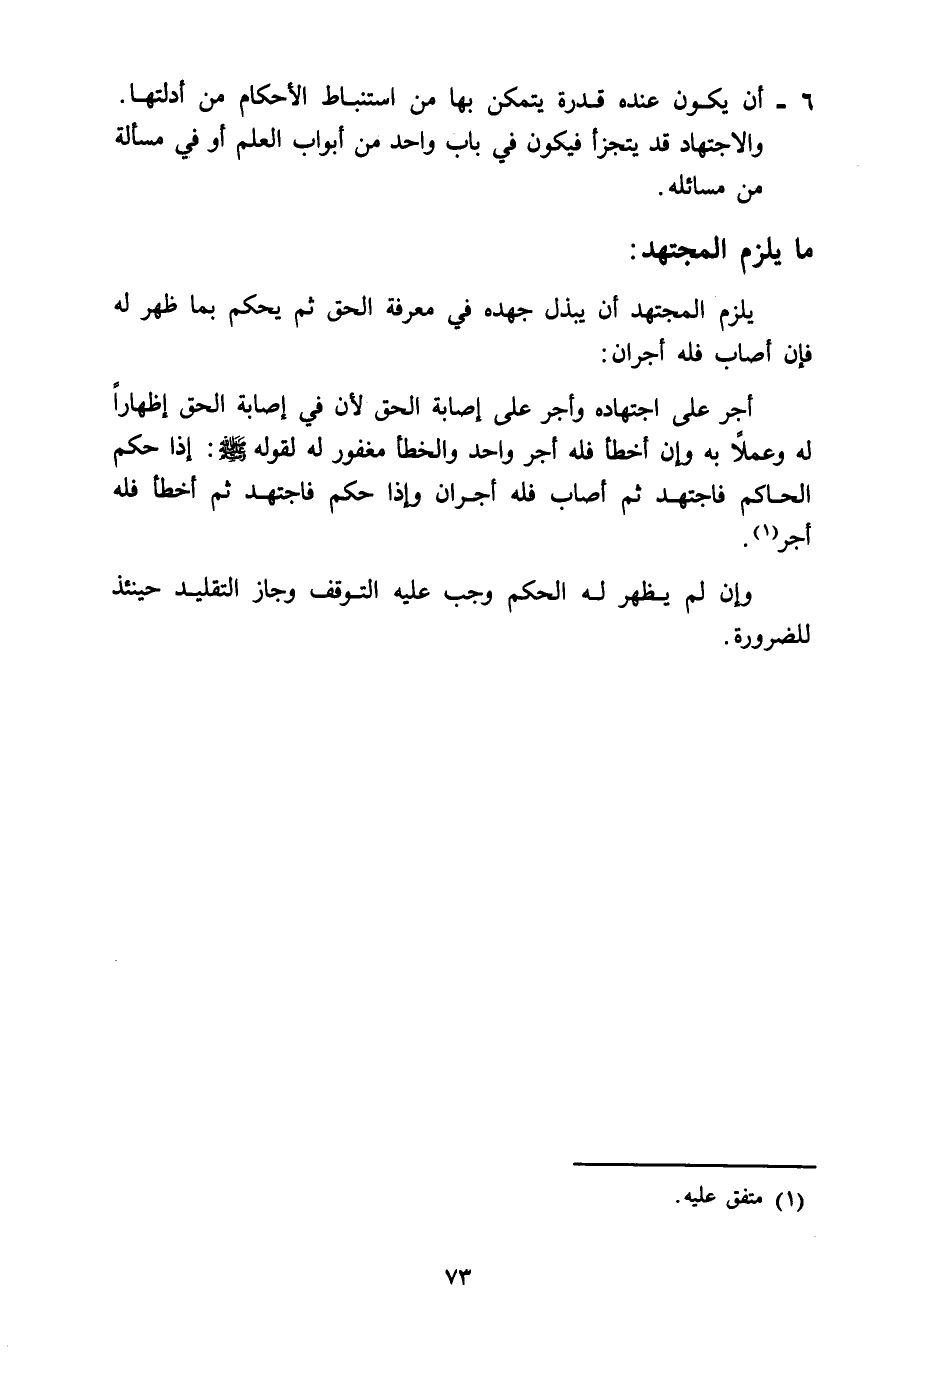 ٦ - أن يكون عنده قدرة يتمكن بها من استنباط الأحكام من أدلتها.
والاجتهاد قد يتجزأ فيكون في باب واحد من أبواب العلم أو في مسألة
من مسائله.
ما يلزم المجتهد:
يلزم المجتهد أن يبذل جهده في معرفة الحق ثم يحكم بما ظهر له
فإن أصاب فله أجران:
أجر على اجتهاده وأجر على إصابة الحق لأن في إصابة الحق إظهاراً
له وعملاً به وإن أخطأ فله أجر واحد والخطأ مغفور له لقوله ﷺ: إذا حكم
الحاكم فاجتهد ثم أصاب فله أجران وإذا حكم فاجتهد ثم أخطأ فله
أجر(١).
وإن لم يظهر له الحكم وجب عليه التوقف وجاز التقليد حينئذ
للضرورة.
(١) متفق عليه.
٧٣